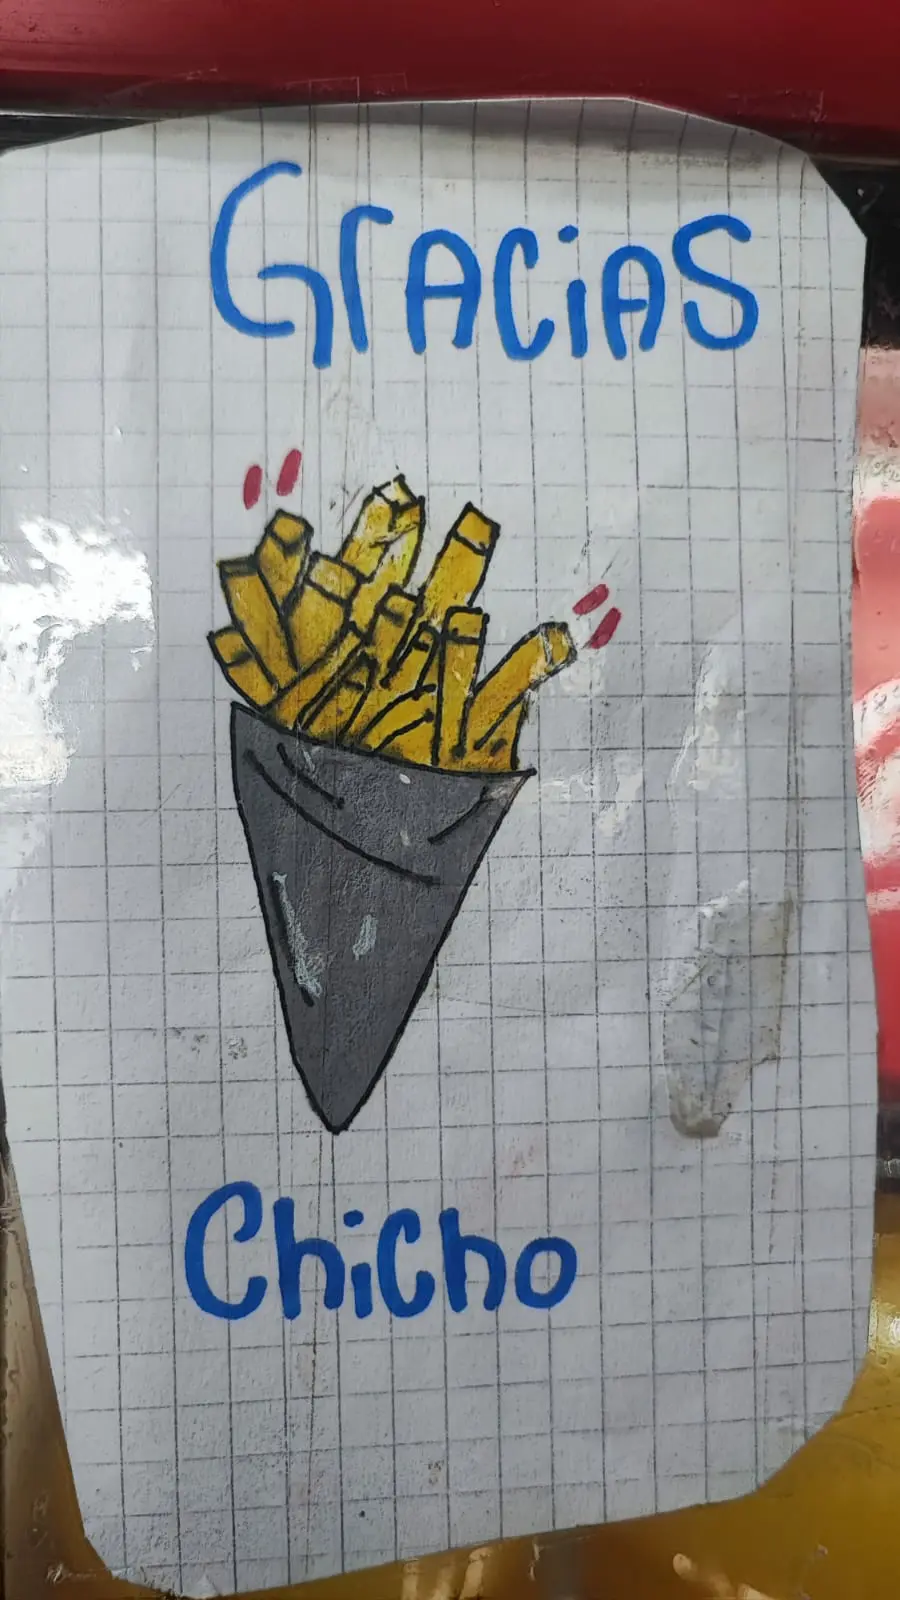 Gracias
Chicho